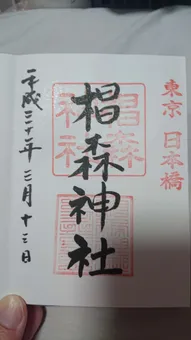 東京 日本橋
椙森神社
椙森
神社
平成三十一年 三月十三日